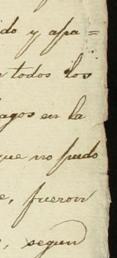 do y apa=
n todos los
agos en la
que no pudo
e, fueron
, segun